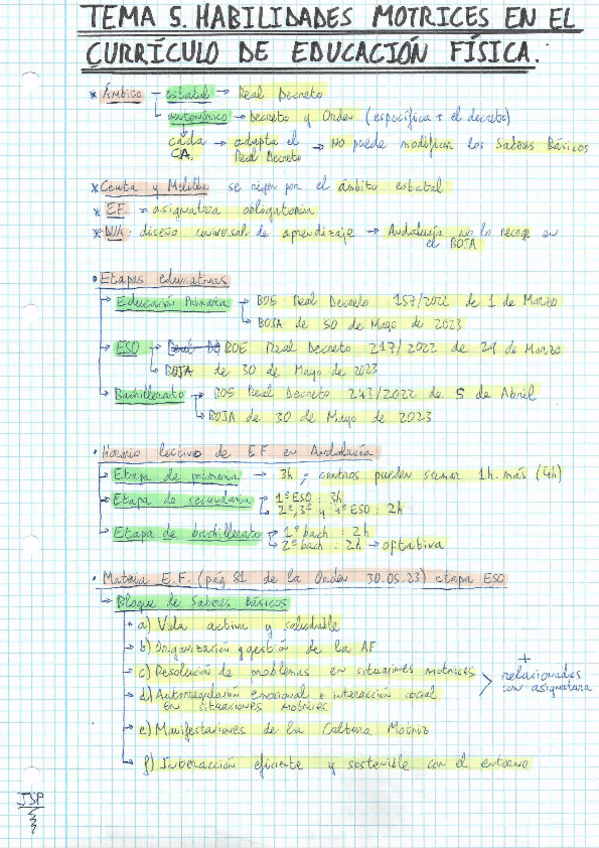 TEMA 5. HABILIDADES MOTRICES EN EL
CURRÍCULO DE EDUCACIÓN FÍSICA.
* Ámbito → estatal → Real Decreto
→ autonómico → Decreto y Orden (específica + el decreto)
cada CA. → adapta el Real Decreto → NO puede modificar los Saberes Básicos
* Ceuta y Melilla se rigen por el ámbito estatal
* EF. = asignatura obligatoria
* DUA: diseño universal de aprendizaje → Andalucía no lo recoge en
el BOJA
• Etapas educativas
→ Educación Primaria → BOE Real Decreto 157/2022 de 1 de Marzo
→ BOJA de 30 de Mayo de 2023
→ ESO → BOE Real Decreto 217/2022 de 29 de Marzo
→ BOJA de 30 de Mayo de 2023
→ Bachillerato → BOE Real Decreto 243/2022 de 5 de Abril
→ BOJA de 30 de Mayo de 2023
• Horario lectivo de E.F. en Andalucía
→ Etapa de primaria → 3h ; centros pueden sumar 1h. más (4h)
→ Etapa de secundaria → 1º ESO: 3h
→ 2º, 3º y 4º ESO: 2h
→ Etapa de bachillerato → 1º bach: 2h
→ 2º bach: 2h → optativa
• Materia E.F. (pág 81 de la Orden 30.05.23) etapa ESO
→ Bloque de Saberes Básicos
→ a) Vida activa y saludable
→ b) Organización y gestión de la AF
→ c) Resolución de problemas en situaciones motrices
→ d) Autorregulación emocional e interacción social
en situaciones motrices
+
relacionados
con asignatura
→ e) Manifestaciones de la Cultura Motriz
→ f) Interacción eficiente y sostenible con el entorno
JSP